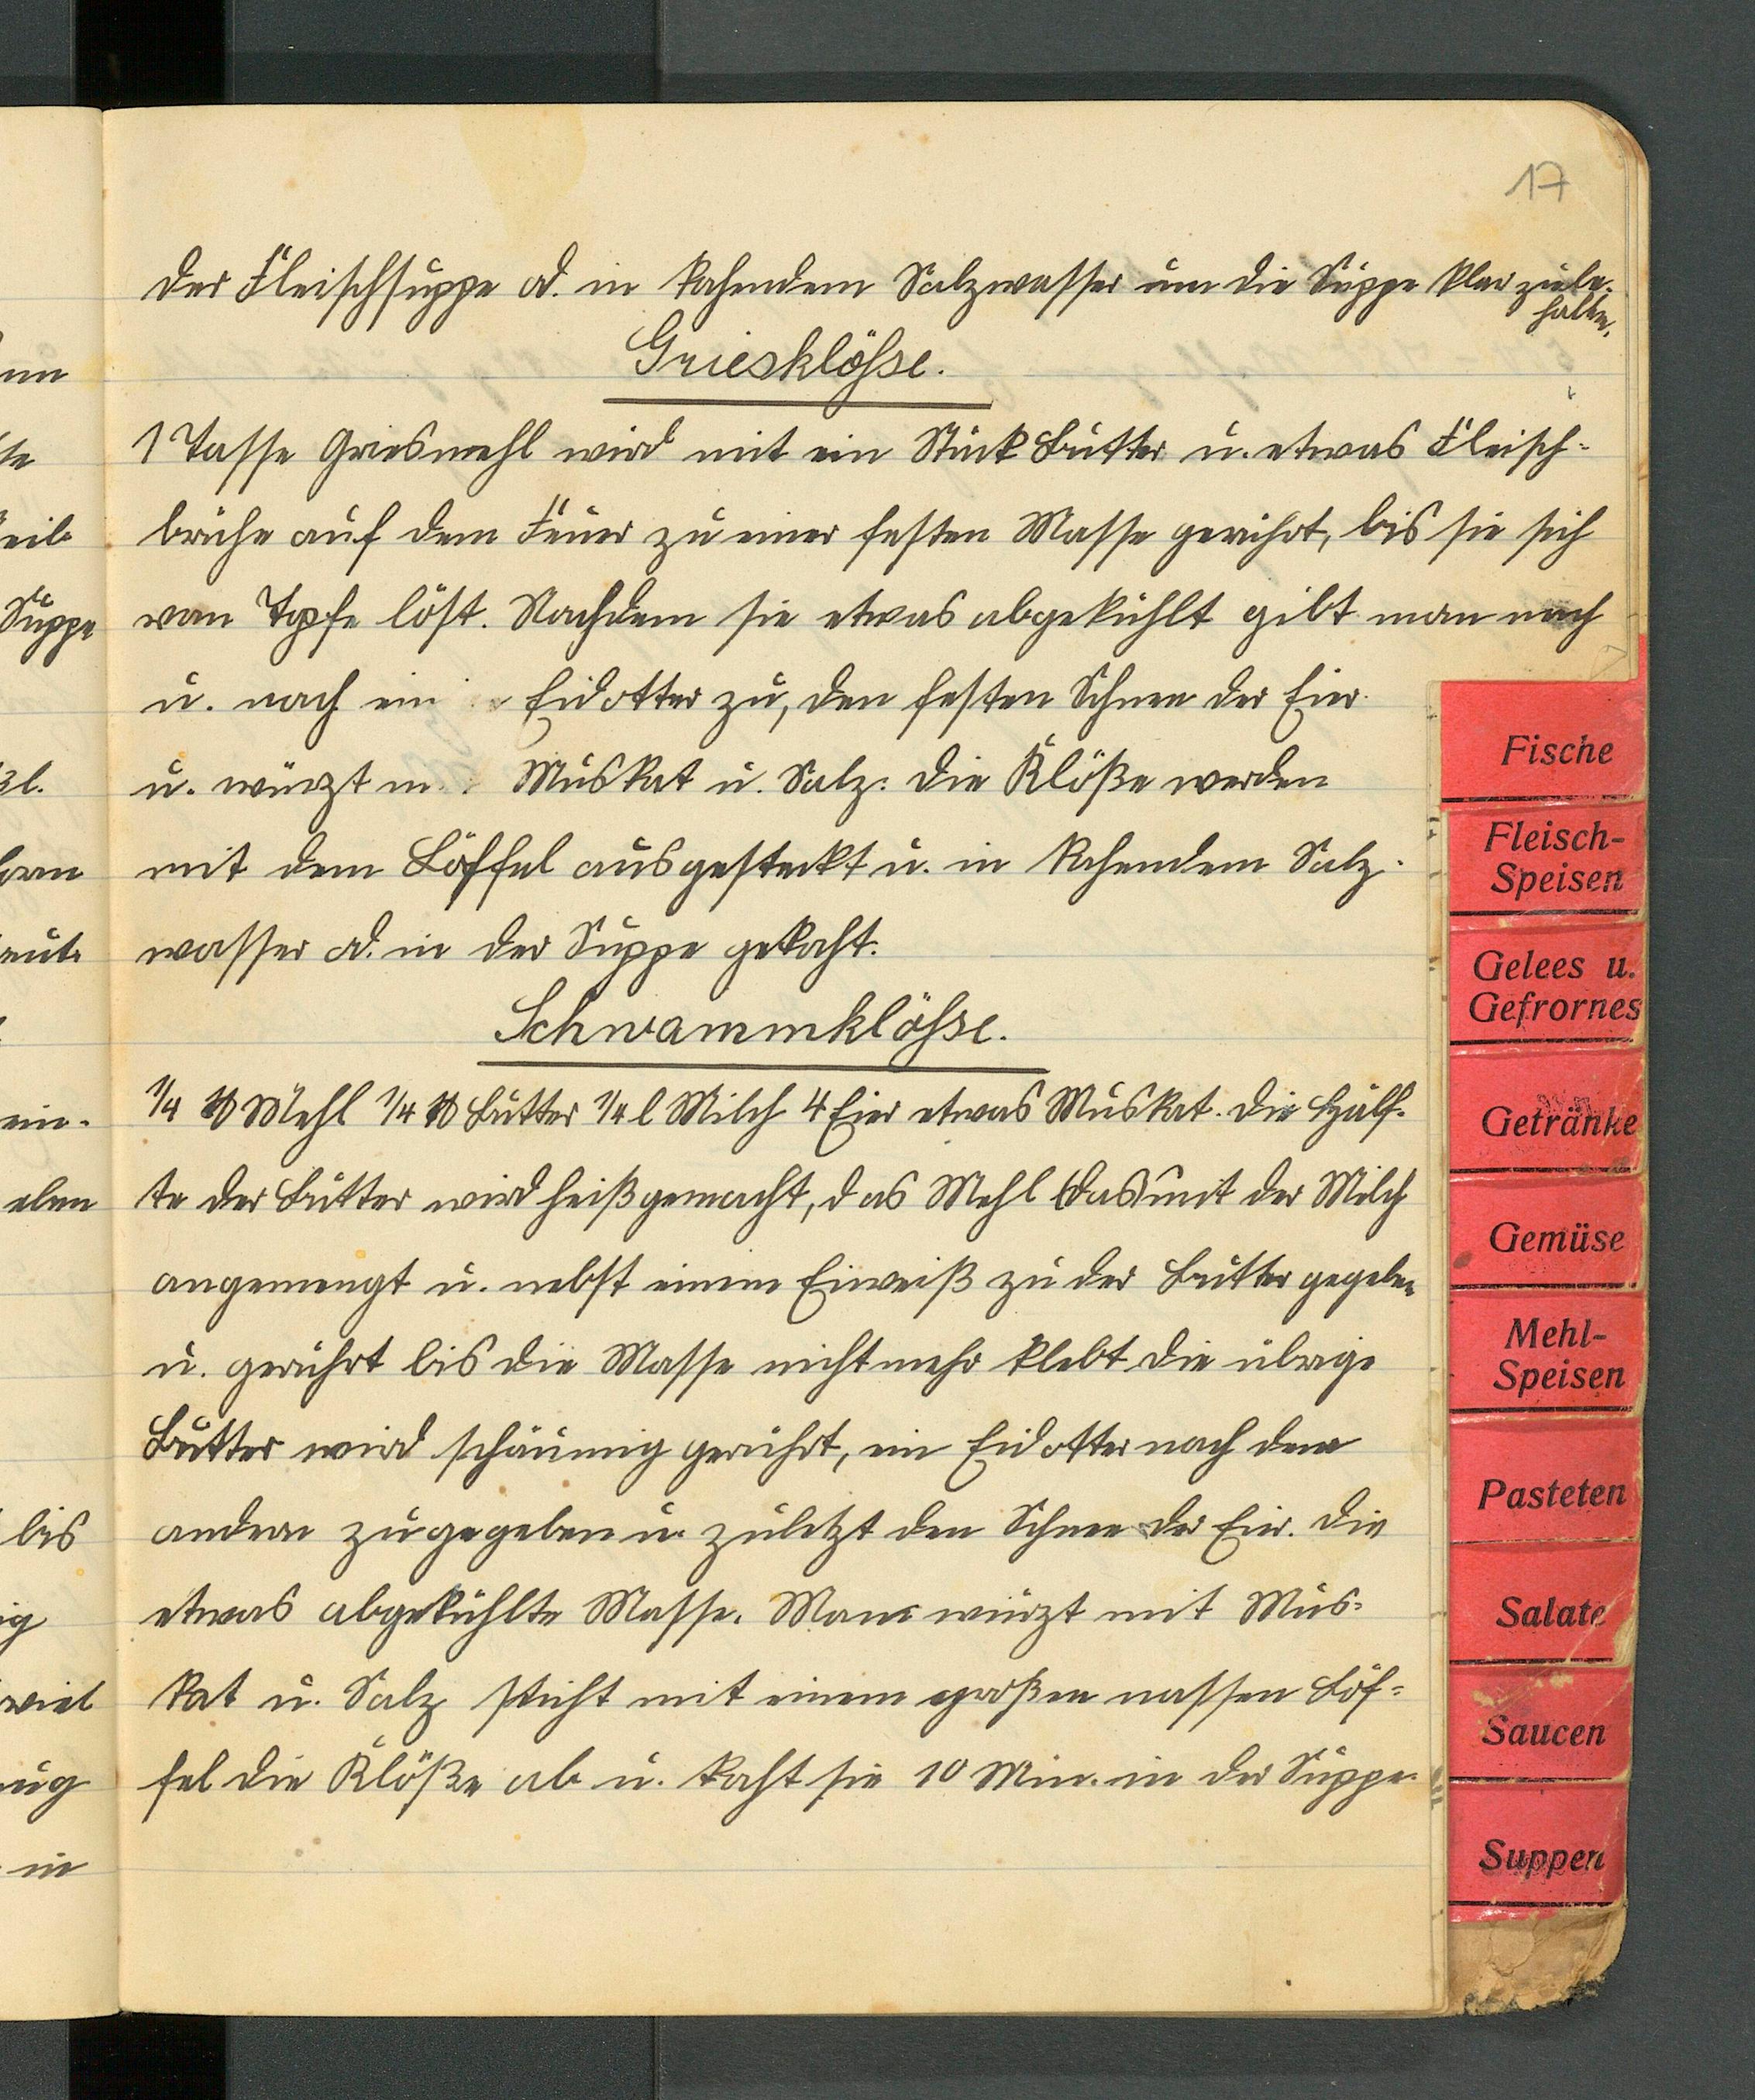 17
der Fleischsuppe od. in kochendem Salzwasser um die Suppe klar zu be-
halten.
Griesklösse.
1 Tasse Griesmehl wird mit ein Stück Butter u. etwas Fleisch-
brühe auf dem Feuer zu einer festen Masse gerührt, bis sie sich
vom Topfe löst. Nachdem sie etwas abgekühlt gibt man nach
u. nach ein Eidotter zu, den festen Schnee der Eier
u. würzt m Muskat u. Salz. Die Klöße werden
mit dem Löffel ausgesteckt u. in kochendem Salz-
wasser od. in der Suppe gekocht.
Schwammklösse.
1/4 ℔ Mehl 1/4 ℔ Butter 1/4 l Milch 4 Eier etwas Muskat. Die Hälf-
te der Butter wird heiß gemacht, das Mehl das mit der Milch
angemengt u. nebst einem Eiweiß zu der Butter gegeben
u. gerührt bis die Masse nicht mehr klebt die übrige
Butter wird schäumig gerührt, ein Eidotter nach dem
andern zugegeben u. zuletzt den Schnee der Eier. Die
etwas abgekühlte Masse. Man würzt mit Mus-
kat u. Salz sticht mit einem großen nassen Löf-
fel die Klöße ab u. kocht sie 10 Min. in der Suppe.
Fische
Fleisch-
Speisen
Gelees u.
Gefrornes
Getränke
Gemüse
Mehl-
Speisen
Pasteten
Salate
Saucen
Suppen
Suppe
eben
bis
viel
in